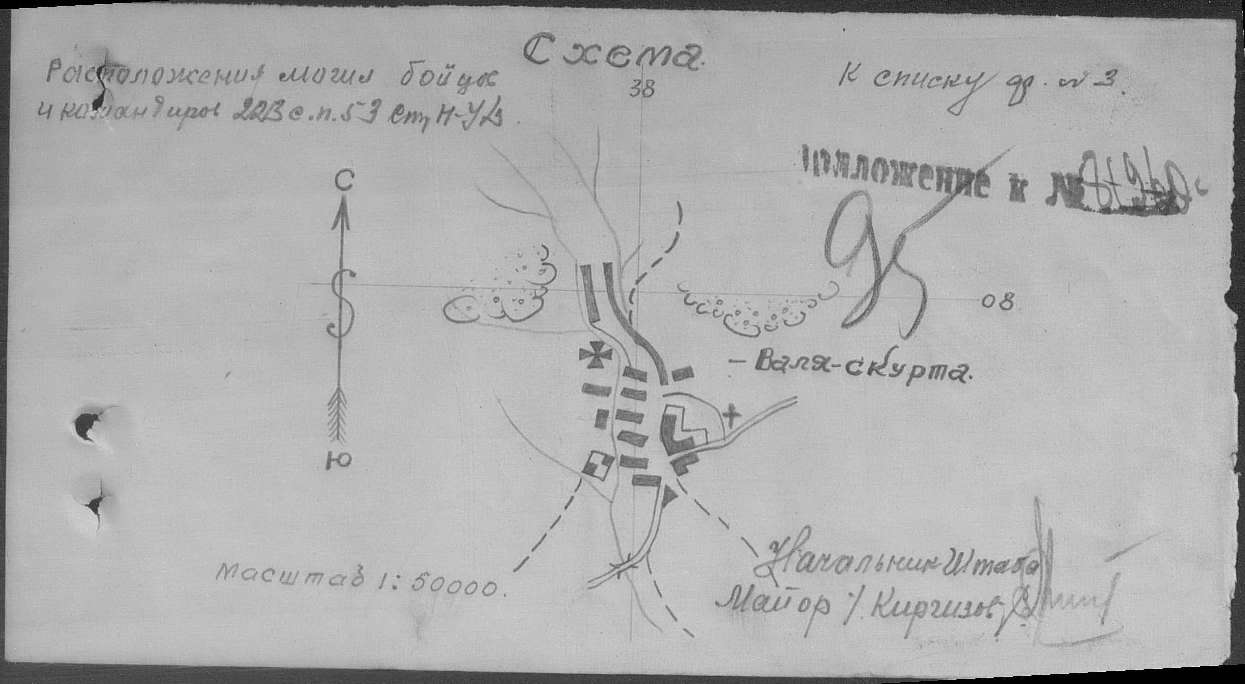 Схема.
Расположения могил бойцов
и командиров 223 с.п. 53 стр
38
К списку ф. №3.
приложение к №
95
С
08
- Валя-скурта.
Ю
Масштаб 1:50000.
Начальник Штаба
Майор / Киргизов